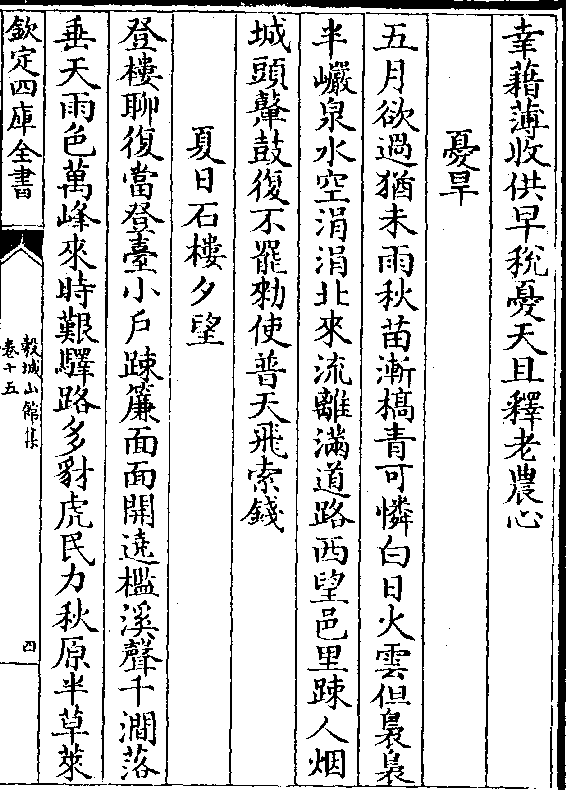 幸藉薄收供早稅憂天且釋老農心
憂旱
五月欲過猶未雨秋苗漸槁青可憐白日火雲但裊裊
半巘泉水空涓涓北來流離滿道路西望邑里踈人烟
城頭鼛鼓復不罷勑使普天飛索錢
夏日石樓夕望
登樓聊復當登臺小戶踈簾面面開遠檻溪聲千澗落
垂天雨色萬峰來時艱驛路多豺虎民力秋原半草萊
欽定四庫全書
穀城山館集
卷十五
四